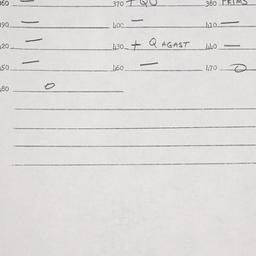 360 — 370 + QU 380 PRIMS
390 — 400 — 410 —
420 — 430 + Q AGAST 440 —
450 — 460 — 470 0
480 0